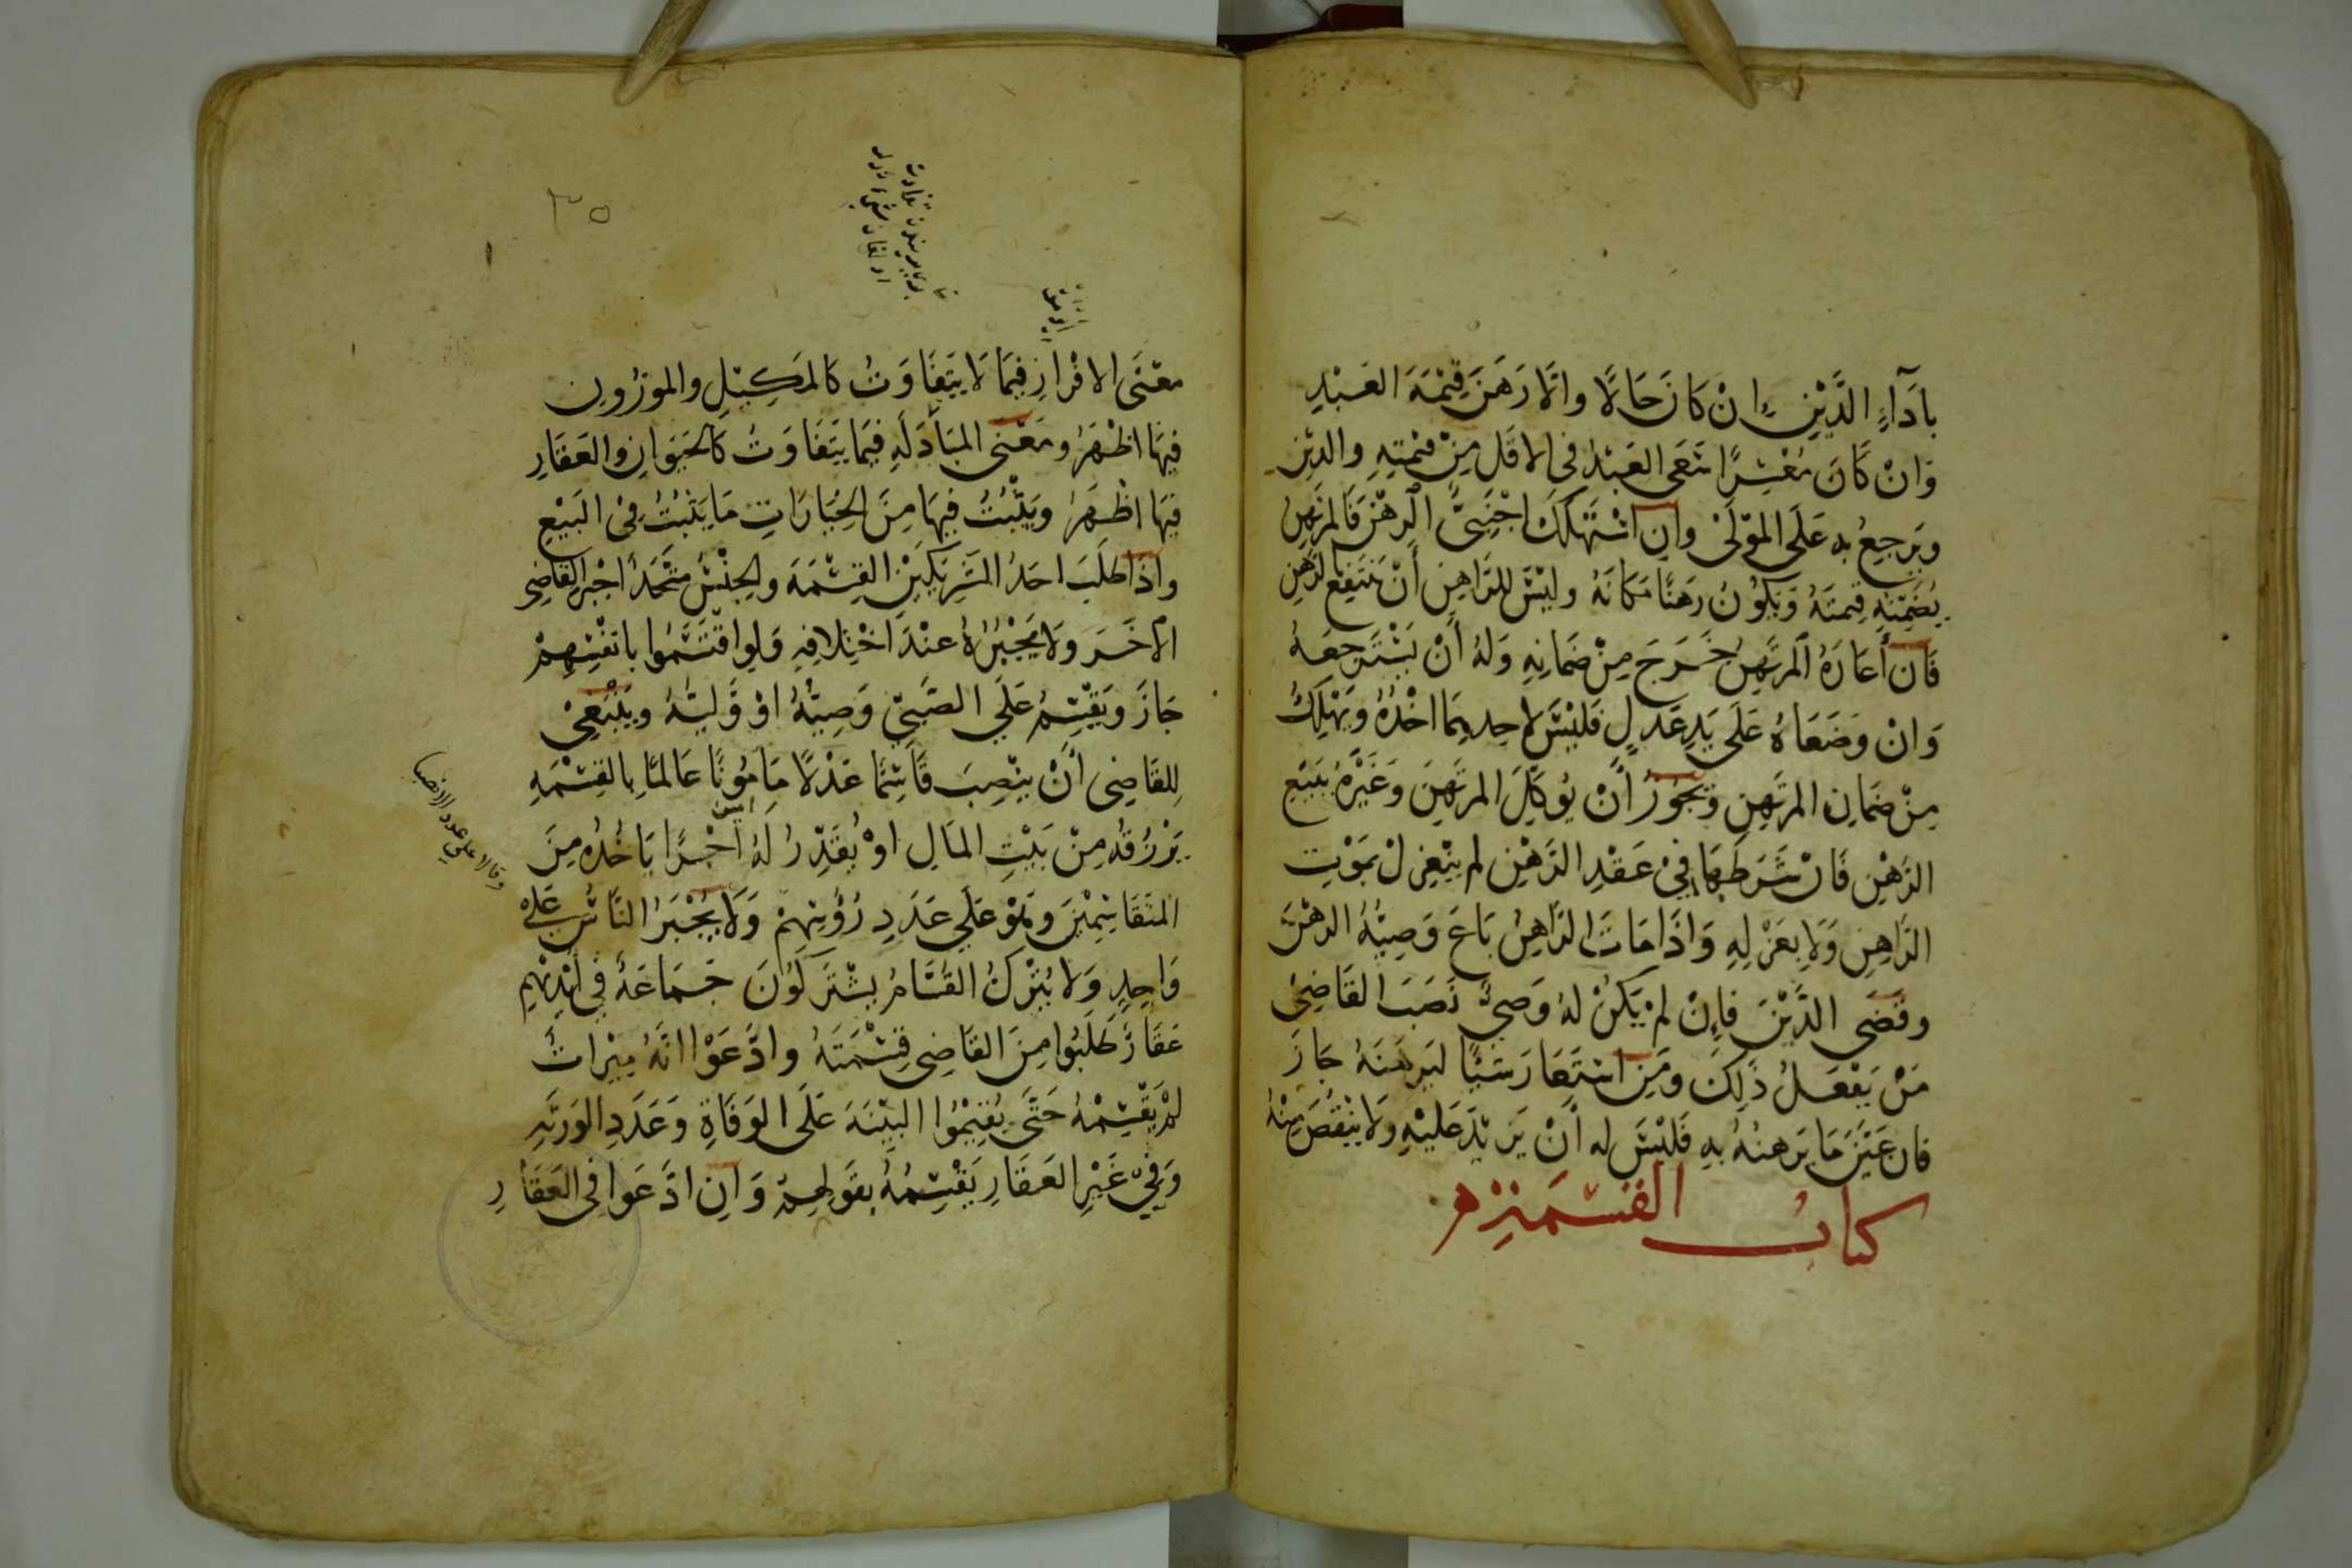 بِأَدَآءِ الدَّيْنِ اِنْ كَانَ حَالًا وَاِلَّا رَهَنَ قِيْمَةَ العَبْدِ
وَاِنْ كَانَ مُعْسِرًا سَعَى العَبْدُ فِى الاَقَلِّ مِنْ قِيْمَتِهِ وَالدَّيْنِ
وَيَرجِعُ به عَلَى المَوْلَىْ وَاِن اسْتَهْلَكَ اجْنَبِىٌّ الرَّهْنَ فَالمُرتَهِنُ
يُضَمِّنُهِ قيمتَهُ وَيَكُوْنُ رَهْنًا مَكَانَهُ وليْسَ للرَّاهِنِ أَنْ يَنتَفِعَ بالرَّهنِ
فَاِن أَعَارَهُ المرتَهِنُ خَرَجَ مِنْ ضَمَانِهِ وَلهُ أَنْ يَسْتَرجِعَهُ
وَانْ وَضَعَاهُ عَلَى يَدِ عَدلٍ فَليْسَ لاحدِهِمَا اخْذُهُ وَيَهْلِكُ
مِنْ ضَمَانِ المرتَهِنِ وَيَجُوْزُ أَنْ يُوَكِّلَ المرتَهِنَ وَغَيْرَهُ بِبَيْعِ
الرَّهْنِ فَاِنْ شَرَطَهَا فِيْ عَقْدِ الرَّهْنِ لم يَنْعَزِلْ بمَوْتِ
الرَّاهِنِ وَلَا بِعَزْلِهِ وَاِذَا مَاتَ الرَّاهِنُ بَاعَ وَصِيُّهُ الرهْنَ
وقَضَى الدَّيْنَ فَاِنْ لمْ يَكُنْ لهُ وَصىٌّ نَصَبَ القَاضِىْ
مَنْ يَفْعَلُ ذٰلِكَ وَمَنِ اسْتَعَارَ شَيْئًا ليَرهَنَهُ جَازَ
فان عَيَّنَ مَا يَرهنُهُ بِهِ فَليْسَ له اَنْ يَزِيْدَ عَليْهِ وَلَا يَنْقُصَ مِنْهُ
كتاب القسمة
معْنَى الافْرَازِ فِيْمَا لَا يَتَفَاوَتُ كَالمَكِيْلِ وَالموْزُونِ
فِيْهَا اَظْهَرُ وَمَعْنَى المُبَادَلَةِ فِيْمَا يَتَفَاوَتُ كَالحَيَوَانِ وَالعَقَارِ
فِيْهَا اظْهَرُ وَيَثْبُتُ فِيهَا مِنَ الخِيَارَاتِ مَا يَثْبُتُ فِىْ البَيْعِ
وَاِذَا طَلَبَ احَدُ الشَّرِيْكَيْنِ القِسْمَةَ وَالجِنْسُ مُتَّحِدٌ أَجْبَرَ القَاضِى
الآخَرَ وَلَا يُجْبِرُهُ عنْدَ اخْتِلَافِهِ وَلَوِ اقْتَسَمُوا بِانفُسِهِمْ
جَازَ وَيَقْسِمُ عَلَى الصَّبِىِّ وَصِيُّهُ اَوْ وَلِيُّهُ وَيَنْبَغِىْ
لِلقَاضِى أَنْ يَنْصِبَ قَاسِمًا عَدْلًا مَامُوْنًا عَالمًا بِالقِسْمَةِ
يَرْزُقُهُ مِنْ بَيْتِ المَالِ اَوْ يُقَدِّرُ لَهُ أَجْرًا يَاخُذُه مِنَ
المتَقَاسِمِيْنَ وَهُوَ عَلَى عَدَدِ رُؤُسِهِمْ وَلَا يُجْبَرُ النَّاسُ عَلَى
وقالا على عدد الانصبا
وَاحِدٍ وَلَا يُتْرَكُ القُسَّامُ يَشْتَرِكُونَ جَمَاعَةٌ فِى اَيْدِيْهِم
عَقَارٌ طَلَبُوا مِنَ القَاضِى قِسْمَتَهُ وَادَّعَوْا انَّهُ مِيْرَاثٌ
لَمْ يَقْسِمْهُ حَتَّى يُقِيْمُوا البَيِّنَةَ عَلَى الوَفَاةِ وَعَدَدِ الوَرَثَةِ
وَفِىْ غَيْرِ العَقَارِ يَقْسِمُهُ بِقَوْلِهِمْ وَاِنِ ادَّعَوا فِى العَقَارِ